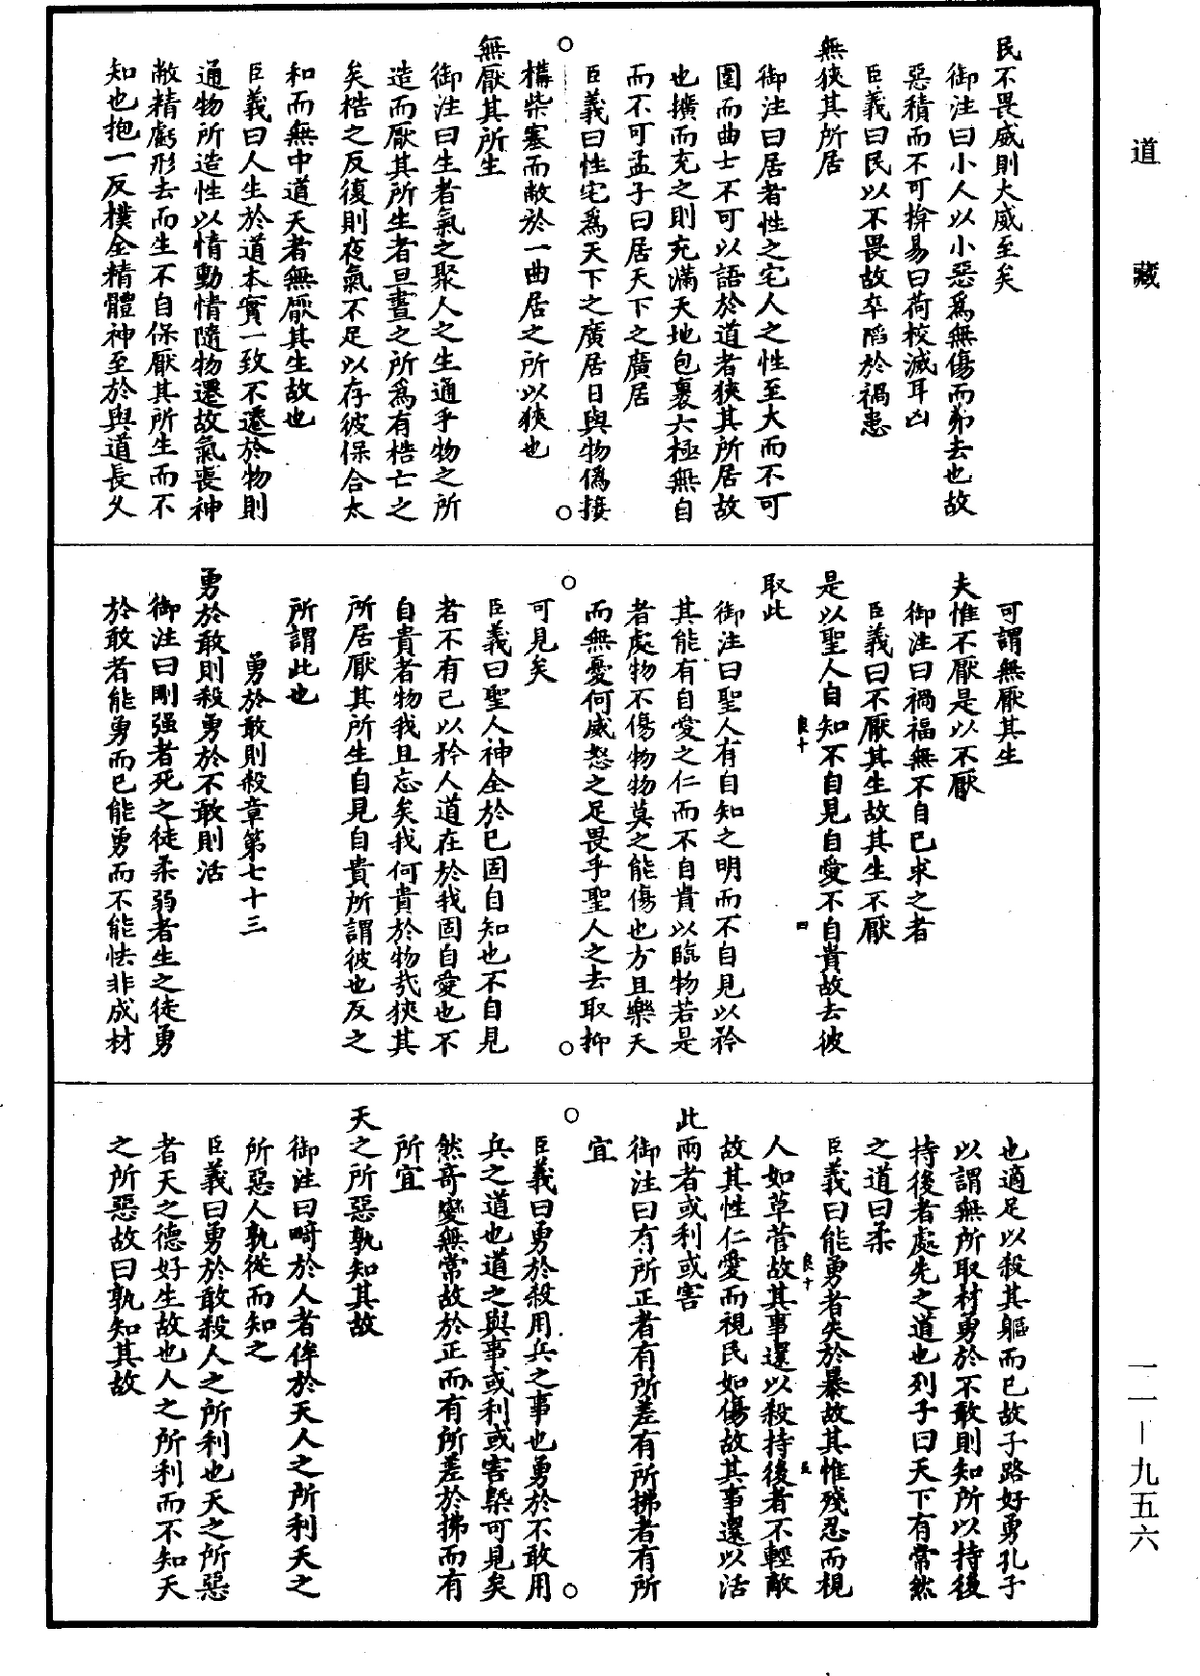 道藏
民不畏威則大威至矣
御注曰小人以小惡為無傷而弗去也故
惡積而不可揜易曰荷校滅耳凶
臣義曰民以不畏故卒陷於禍患
無狹其所居
御注曰居者性之宅人之性至大而不可
圍而曲士不可以語於道者狹其所居故
也擴而充之則充滿天地包裹六極無自
而不可孟子曰居天下之廣居
臣義曰性宅為天下之廣居日與物偽接
構柴塞而敝於一曲居之所以狹也
無厭其所生
御注曰生者氣之聚人之生通乎物之所
造而厭其所生者旦晝之所為有梏亡之
矣梏之反復則夜氣不足以存彼保合太
和而無中道夭者無厭其生故也
臣義曰人生於道本實一致不遷於物則
通物所造性以情動情隨物遷故氣喪神
敝精虧形去而生不自保厭其所生而不
知也抱一反樸全精體神至於與道長久
可謂無厭其生
夫惟不厭是以不厭
御注曰禍福無不自已求之者
臣義曰不厭其生故其生不厭
是以聖人自知不自見自愛不自貴故去彼
良十 四
取此
御注曰聖人有自知之明而不自見以矜
其能有自愛之仁而不自貴以臨物若是
者處物不傷物物莫之能傷也方且樂天
而無憂何威怒之足畏乎聖人之去取抑
可見矣
臣義曰聖人神全於已固自知也不自見
者不有己以矜人道在於我固自愛也不
自貴者物我且忘矣我何貴於物哉狹其
所居厭其所生自見自貴所謂彼也反之
所謂此也
勇於敢則殺章第七十三
勇於敢則殺勇於不敢則活
御注曰剛强者死之徒柔弱者生之徒勇
於敢者能勇而已能勇而不能怯非成材
也適足以殺其軀而已故子路好勇孔子
以謂無所取材勇於不敢則知所以持後
持後者處先之道也列子曰天下有常然
之道曰柔
臣義曰能勇者失於暴故其惟殘忍而視
良十 五
人如草菅故其事還以殺持後者不輕敵
故其性仁愛而視民如傷故其事還以活
此兩者或利或害
御注曰有所正者有所差有所拂者有所
宜
臣義曰勇於殺用兵之事也勇於不敢用
兵之道也道之與事或利或害槩可見矣
然奇變無常故於正而有所差於拂而有
所宜
天之所惡孰知其故
御注曰畸於人者侔於天人之所利天之
所惡人孰從而知之
臣義曰勇於敢殺人之所利也天之所惡
者天之德好生故也人之所利而不知天
之所惡故曰孰知其故
一一－九五六